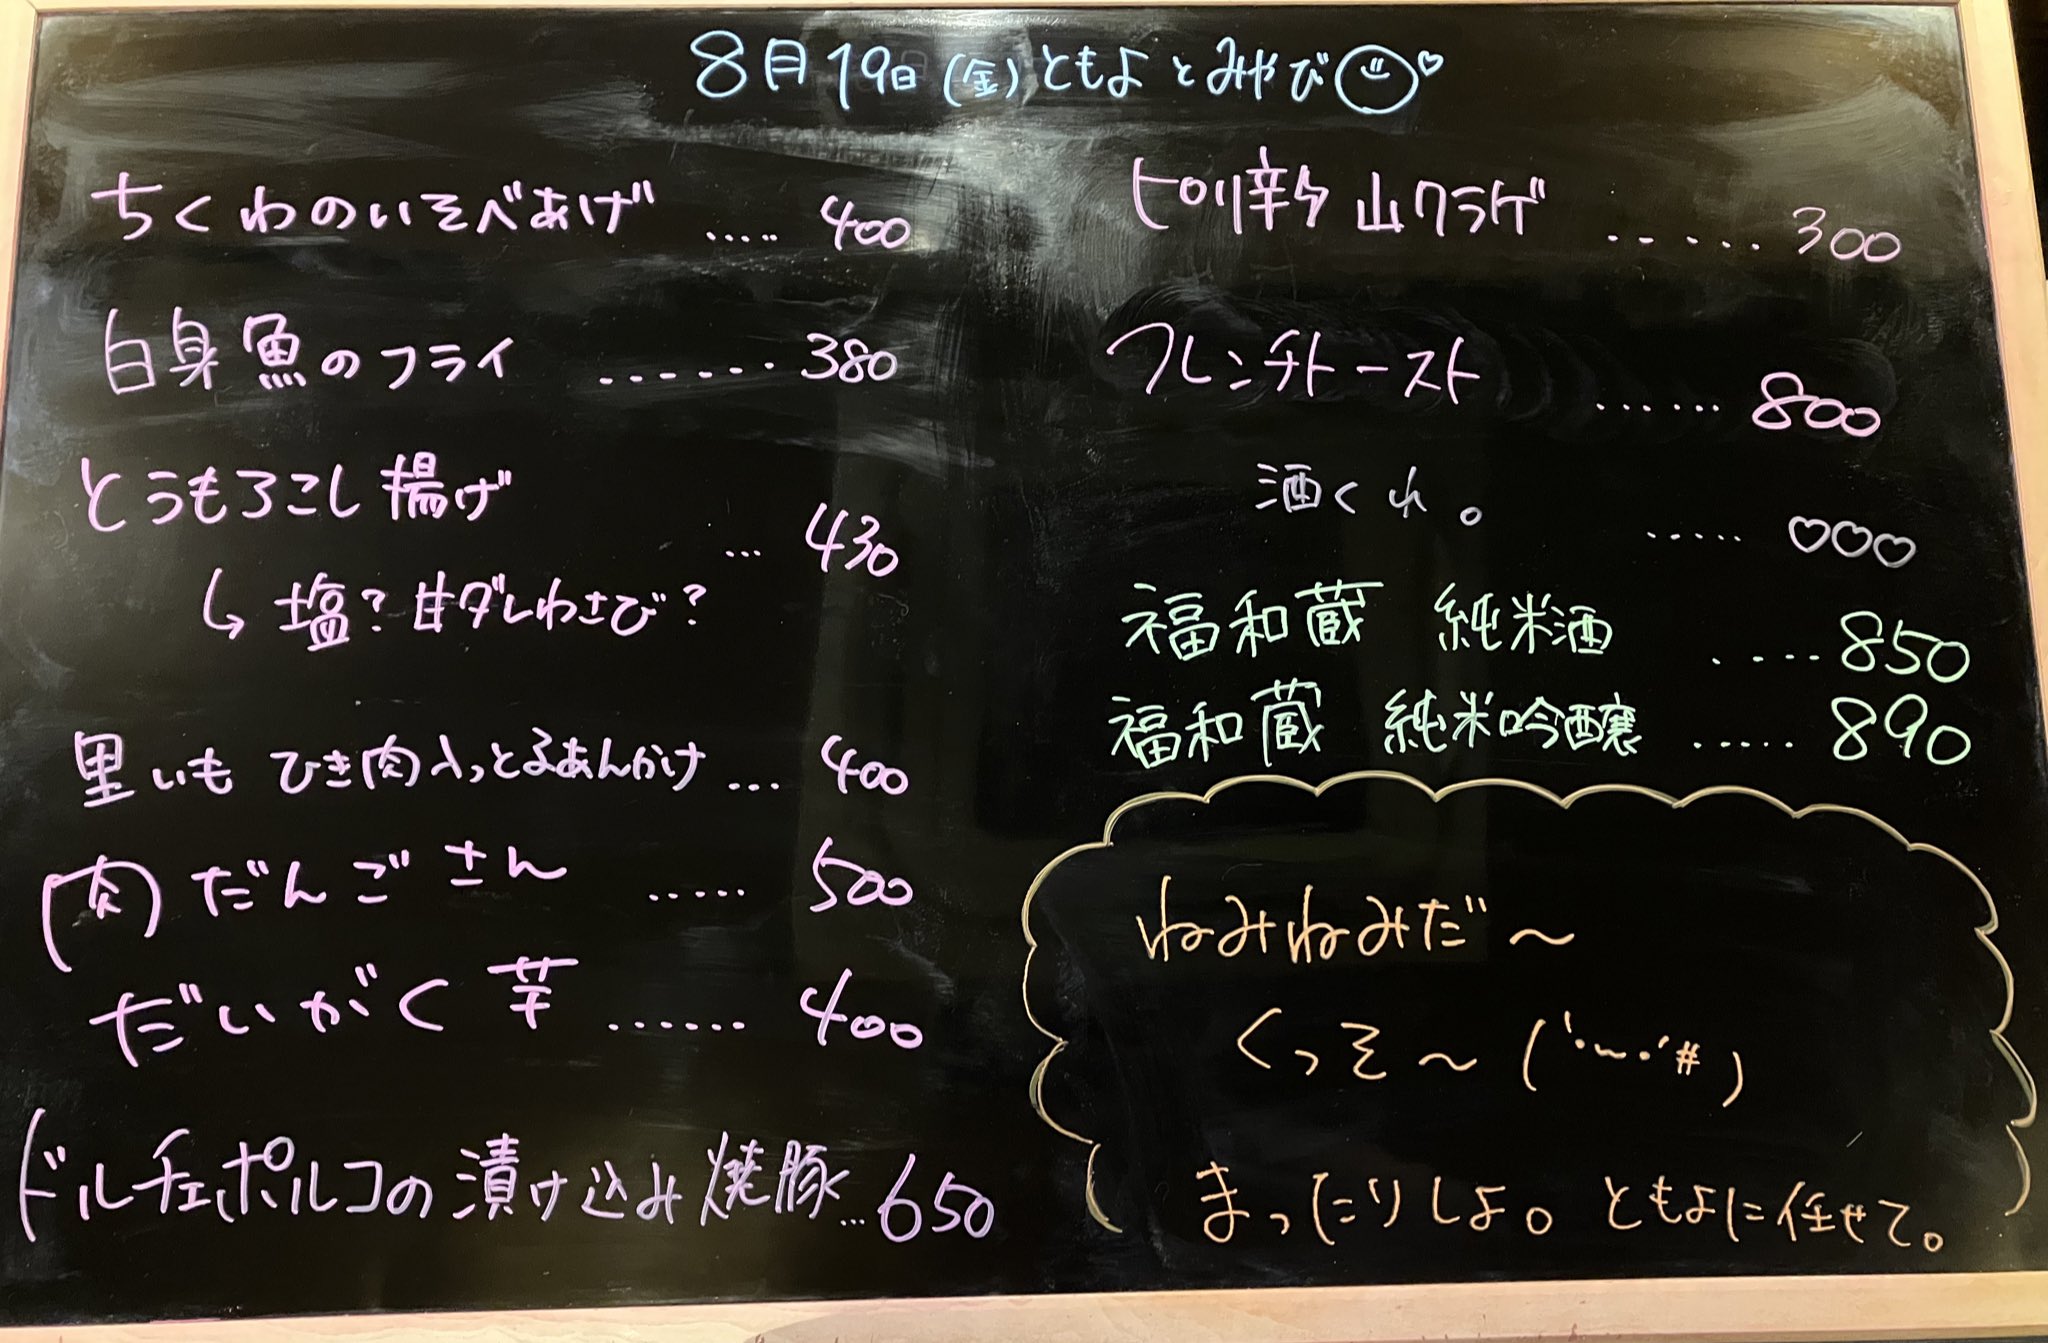 8月19日(金)ともよとみやび
ちくわのいそべあげ ..... 400
白身魚のフライ ....... 380
とうもろこし揚げ ... 430
↳ 塩?甘ダレわさび?
里いも ひき肉入っとるあんかけ ... 400
肉だんごさん ..... 500
だいがく芋 ...... 400
ドルチェポルコの漬け込み焼豚 ... 650
ピリ辛 山クラゲ ...... 300
フレンチトースト ...... 800
酒くれ。 ..... ♡♡♡
福和蔵 純米酒 .... 850
福和蔵 純米吟醸 ..... 890
ねみねみだ〜
くっそ〜(｀･~･´#)
まったりしよ。ともよに任せて。